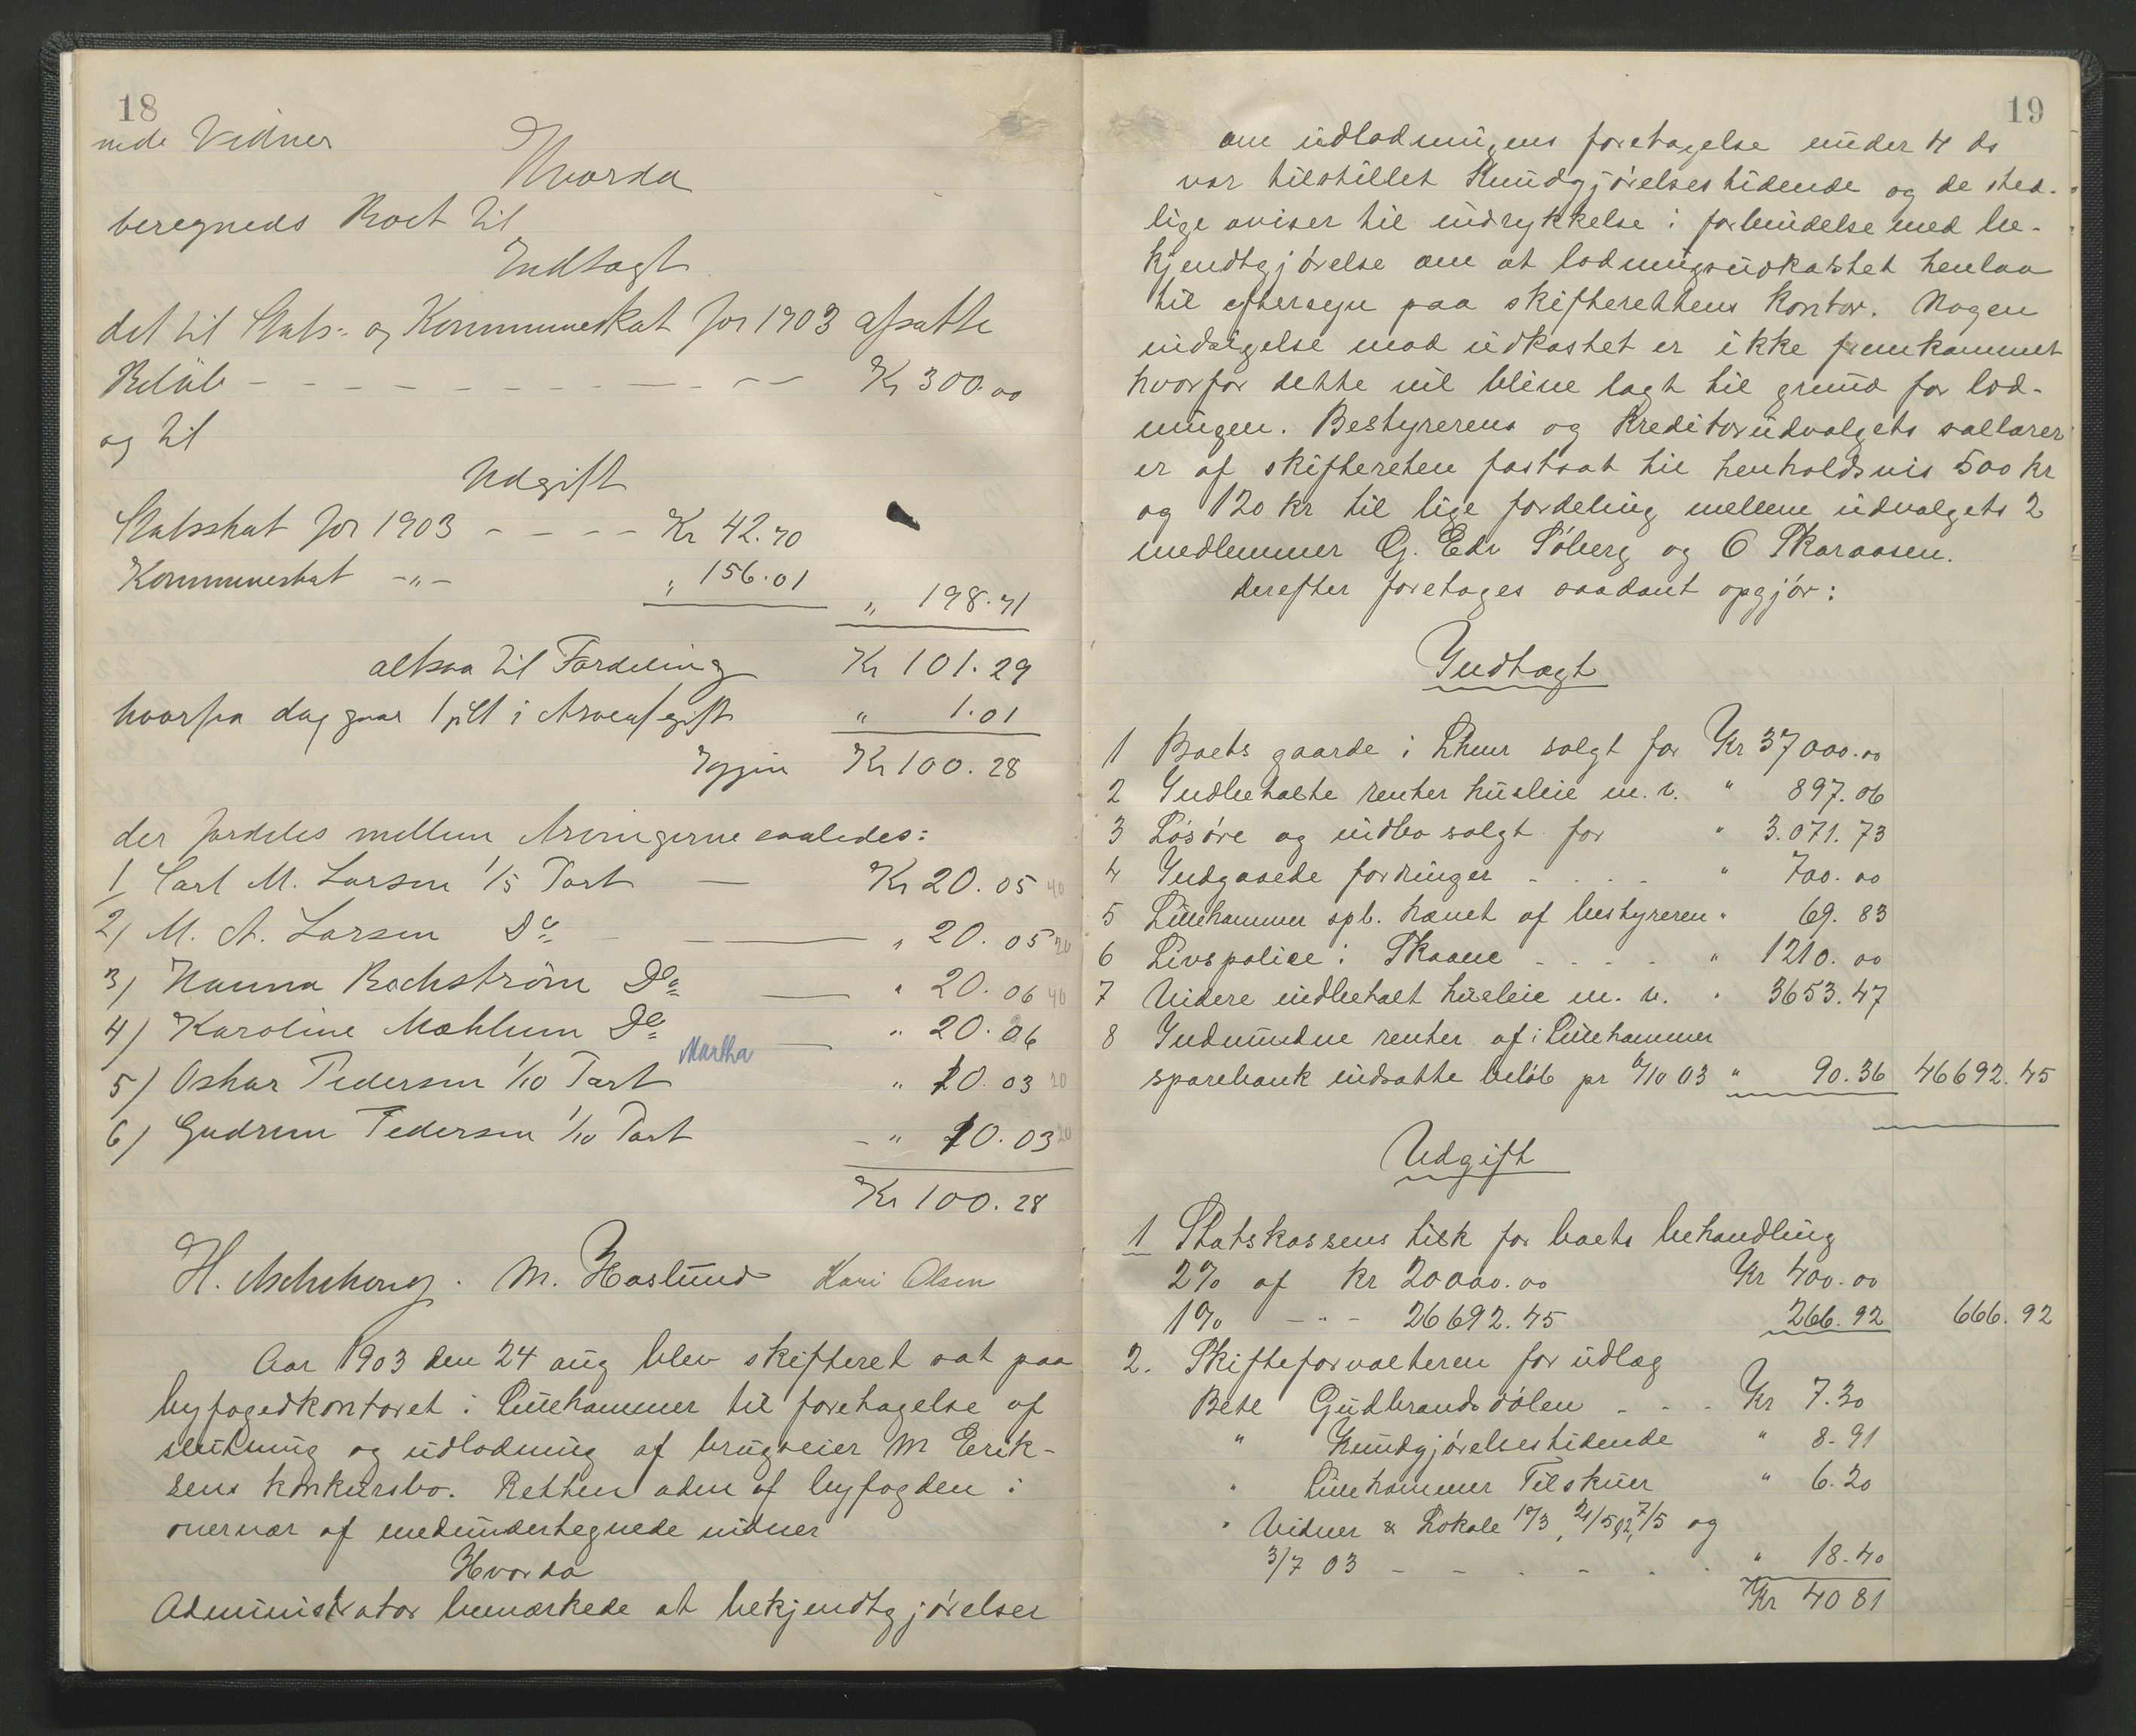 18
nede Vidner
Hvorda
beregnedes Boet til
Indtægt
det til Stats- og Kommuneskat for 1903 afsatte
Beløb - - - - - - - - - - - Kr 300.00
og til
Udgift
Statsskat for 1903 - - - - Kr 42.70
Kommuneskat -"- " 156.01
" 198.71
altsaa til Fordeling Kr 101.29
hvorfra dog gaar 1 pCt i Arveafgift " 1.01
Igjen Kr 100.28
der fordeles mellem Arvingerne saaledes:
1/ Carl M. Larsen 1/5 Part — Kr 20.05 40
2/ M. A. Larsen Do — " 20.05 20
3/ Hanna Bachström Do — " 20.06 40
4/ Karoline Mæhlum Do — " 20.06
Martha
5/ Oskar Pedersen 1/10 Part " 10.03 20
6/ Gudrun Pedersen 1/10 Part - " 10.03 20
Kr 100.28
H. Aschehoug. M. Haslund Kari Olsen
Aar 1903 den 24 aug blev skifteret sat paa
byfogedkontoret i Lillehammer til foretagelse af
slutning og udlodning af brugseier M Erik-
sens konkursbo. Retten adm af byfogden i
overvær af medundertegnede vidner
Hvorda
Administrator bemærkede at bekjendtgjørelser
19
om udlodningens foretagelse under 4 ds
var tilstillet Kundgjørelsestidende og de sted-
lige aviser til indrykkelse i forbindelse med be-
kjendtgjørelse om at lodningsudkastet henlaa
til eftersyn paa skifterettens kontor. Nogen
indsigelse mod udkastet er ikke fremkommet
hvorfor dette vil blive lagt til grund for lod-
ningen. Bestyrerens og Kreditorudvalgets sallarer
er af skifteretten fastsat til henholdsvis 500 kr
og 120 kr til lige fordeling mellem udvalgets 2
medlemmer G. Edv Søberg og O Skaraasen.
Derefter foretages saadant opgjør:
Indtægt
1 Boets gaarde i Lhmr solgt for Kr 37000.00
2 Indbetalte renter husleie m. v. " 897.06
3 Løsøre og indbo solgt for " 3.071.73
4 Indgaaede fordringer - - - - " 700.00
5 Lillehammer spb. hævet af bestyreren " 69.83
6 Livspolice i Skaane - - - - " 1210.00
7 Videre indbetalt husleie m. v. " 3653.47
8 Indvundne renter af i Lillehammer
sparebank indsatte beløb pr 6/10 03 " 90.36 46692.45
Udgift
1 Statskassens tilk for boets behandling
2% af Kr 20000.00 Kr 400.00
1% - " - 26692.45 266.92 666.92
2. Skifteforvalteren for udlæg
Betl Gudbrandsdølen - - - Kr 7.30
" Kundgjørelsestidende " 8.91
" Lillehammer Tilskuer " 6.20
" Vidner & Lokale 17/3, 2/5, 12,7/5 og
3/7 03 - - - - - - " 18.40
Kr 40 81